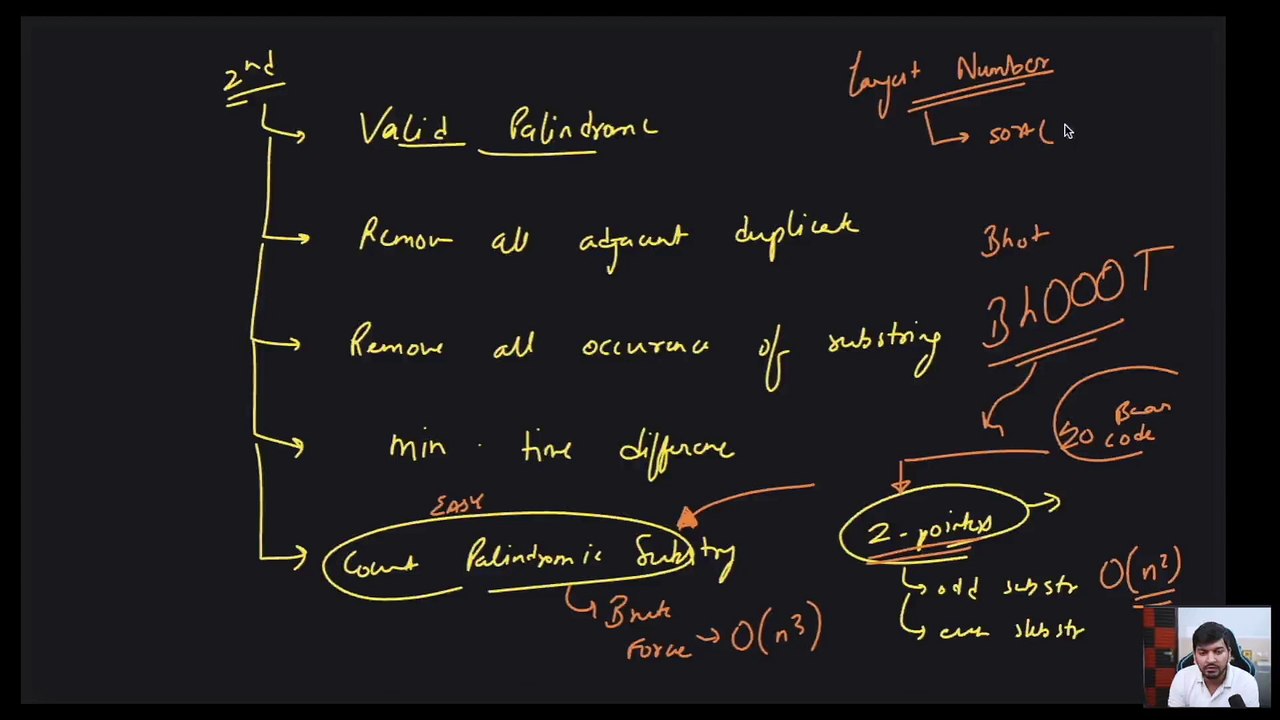 2nd
Valid Palindrome
Remove all adjacent duplicate
Remove all occurence of substring
min. time difference
EASY
Count Palindromic Substry
Brute
Force → O(n³)
Largest Number
→ sort(
Bhot
BhOOOT
Bear
code
2-pointers
odd substr
O(n²)
even substr